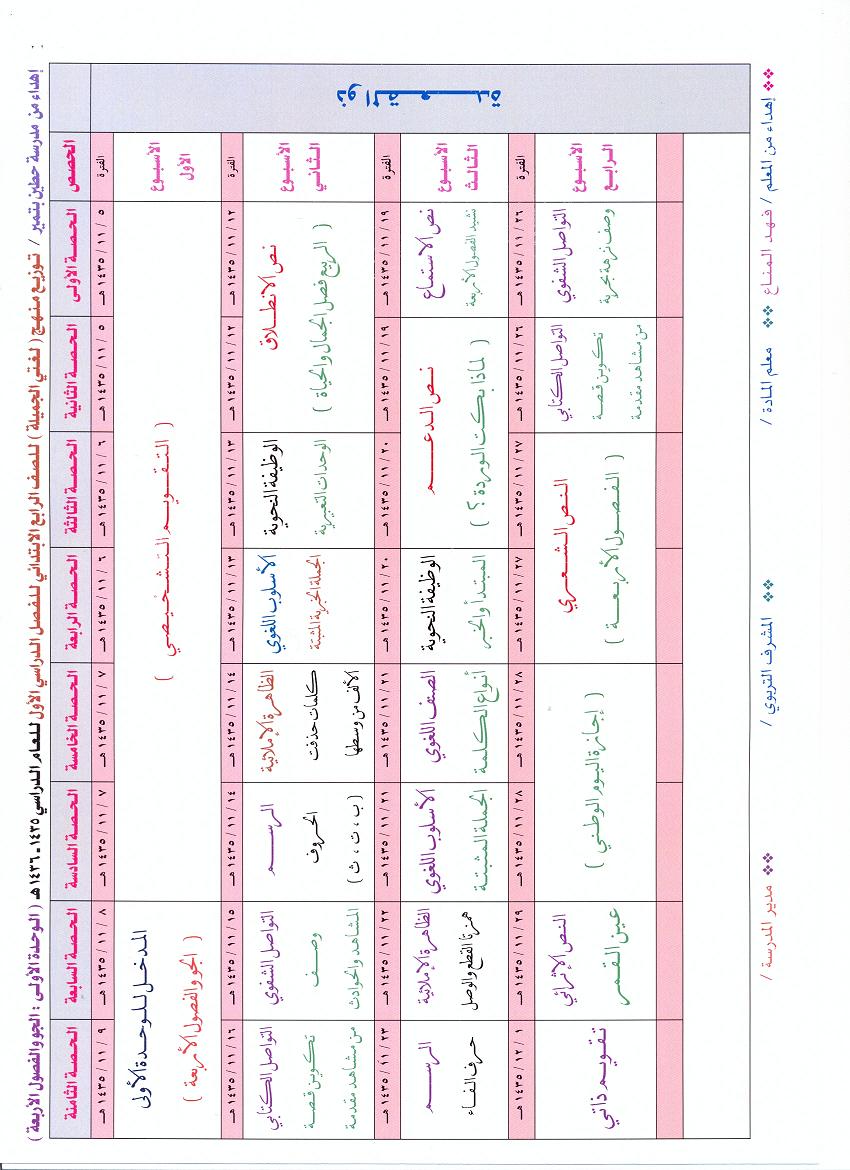 إهداء من مدرسة حطين بتمير / توزيع منهج ( لغتي الجميلة ) للصف الرابع الابتدائي للفصل الدراسي الأول للعام الدراسي ١٤٣٥ـ ١٤٣٦ هـ ( الوحدة الأولى : الجو والفصول الأربعة )
الحصص
الحصة الأولى
الحصة الثانية
الحصة الثالثة
الحصة الرابعة
الحصة الخامسة
الحصة السادسة
الحصة السابعة
الحصة الثامنة
ذو القعدة
الفترة
٥ / ١١ / ١٤٣٥ هـ
٥ / ١١ / ١٤٣٥ هـ
٦ / ١١ / ١٤٣٥ هـ
٦ / ١١ / ١٤٣٥ هـ
٧ / ١١ / ١٤٣٥ هـ
٧ / ١١ / ١٤٣٥ هـ
٨ / ١١ / ١٤٣٥ هـ
٩ / ١١ / ١٤٣٥ هـ
الأسبوع
الأول
( التقويم التشخيصي )
المدخل للوحدة الأولى
( الجو والفصول الأربعة )
الفترة
١٢ / ١١ / ١٤٣٥ هـ
١٢ / ١١ / ١٤٣٥ هـ
١٣ / ١١ / ١٤٣٥ هـ
١٣ / ١١ / ١٤٣٥ هـ
١٤ / ١١ / ١٤٣٥ هـ
١٤ / ١١ / ١٤٣٥ هـ
١٥ / ١١ / ١٤٣٥ هـ
١٦ / ١١ / ١٤٣٥ هـ
الأسبوع
الثاني
نص الانطلاق
( الربيع فصل الجمال والحياة )
الوظيفة النحوية
الوحدات التعبيرية
الأسلوب اللغوي
الجملة الخبرية المثبتة
الظاهرة الإملائية
كلمات حذفت
الألف من وسطها
الرسم
الحروف
( ب ، ت ، ث )
التواصل الشفوي
وصف
المشاهد والحوادث
التواصل الكتابي
تكوين قصة
من مشاهد مقدمة
الفترة
١٩ / ١١ / ١٤٣٥ هـ
١٩ / ١١ / ١٤٣٥ هـ
٢٠ / ١١ / ١٤٣٥ هـ
٢٠ / ١١ / ١٤٣٥ هـ
٢١ / ١١ / ١٤٣٥ هـ
٢١ / ١١ / ١٤٣٥ هـ
٢٢ / ١١ / ١٤٣٥ هـ
٢٣ / ١١ / ١٤٣٥ هـ
الأسبوع
الثالث
نص الاستماع
نشيد الفصول الأربعة
نص الدعم
( لماذا بكت الوردة ؟ )
الوظيفة النحوية
المبتدأ والخبر
الصنف اللغوي
أنواع الكلمة
الأسلوب اللغوي
الجملة المثبتة
الظاهرة الإملائية
همزتا القطع والوصل
الرسم
حرف الفاء
الفترة
٢٦ / ١١ / ١٤٣٥ هـ
٢٦ / ١١ / ١٤٣٥ هـ
٢٧ / ١١ / ١٤٣٥ هـ
٢٧ / ١١ / ١٤٣٥ هـ
٢٨ / ١١ / ١٤٣٥ هـ
٢٨ / ١١ / ١٤٣٥ هـ
٢٩ / ١١ / ١٤٣٥ هـ
١ / ١٢ / ١٤٣٥ هـ
الأسبوع
الرابع
التواصل الشفوي
وصف نزهة بحرية
التواصل الكتابي
تكوين قصة
من مشاهد مقدمة
النص الشعري
( الفصول الأربعة )
( إجازة اليوم الوطني )
النص الإثرائي
عين القمر
تقويم ذاتي
❖❖ إهداء من المعلم / فهد المناع ❖❖ معلم المادة / ❖❖ المشرف التربوي / ❖❖ مدير المدرسة /